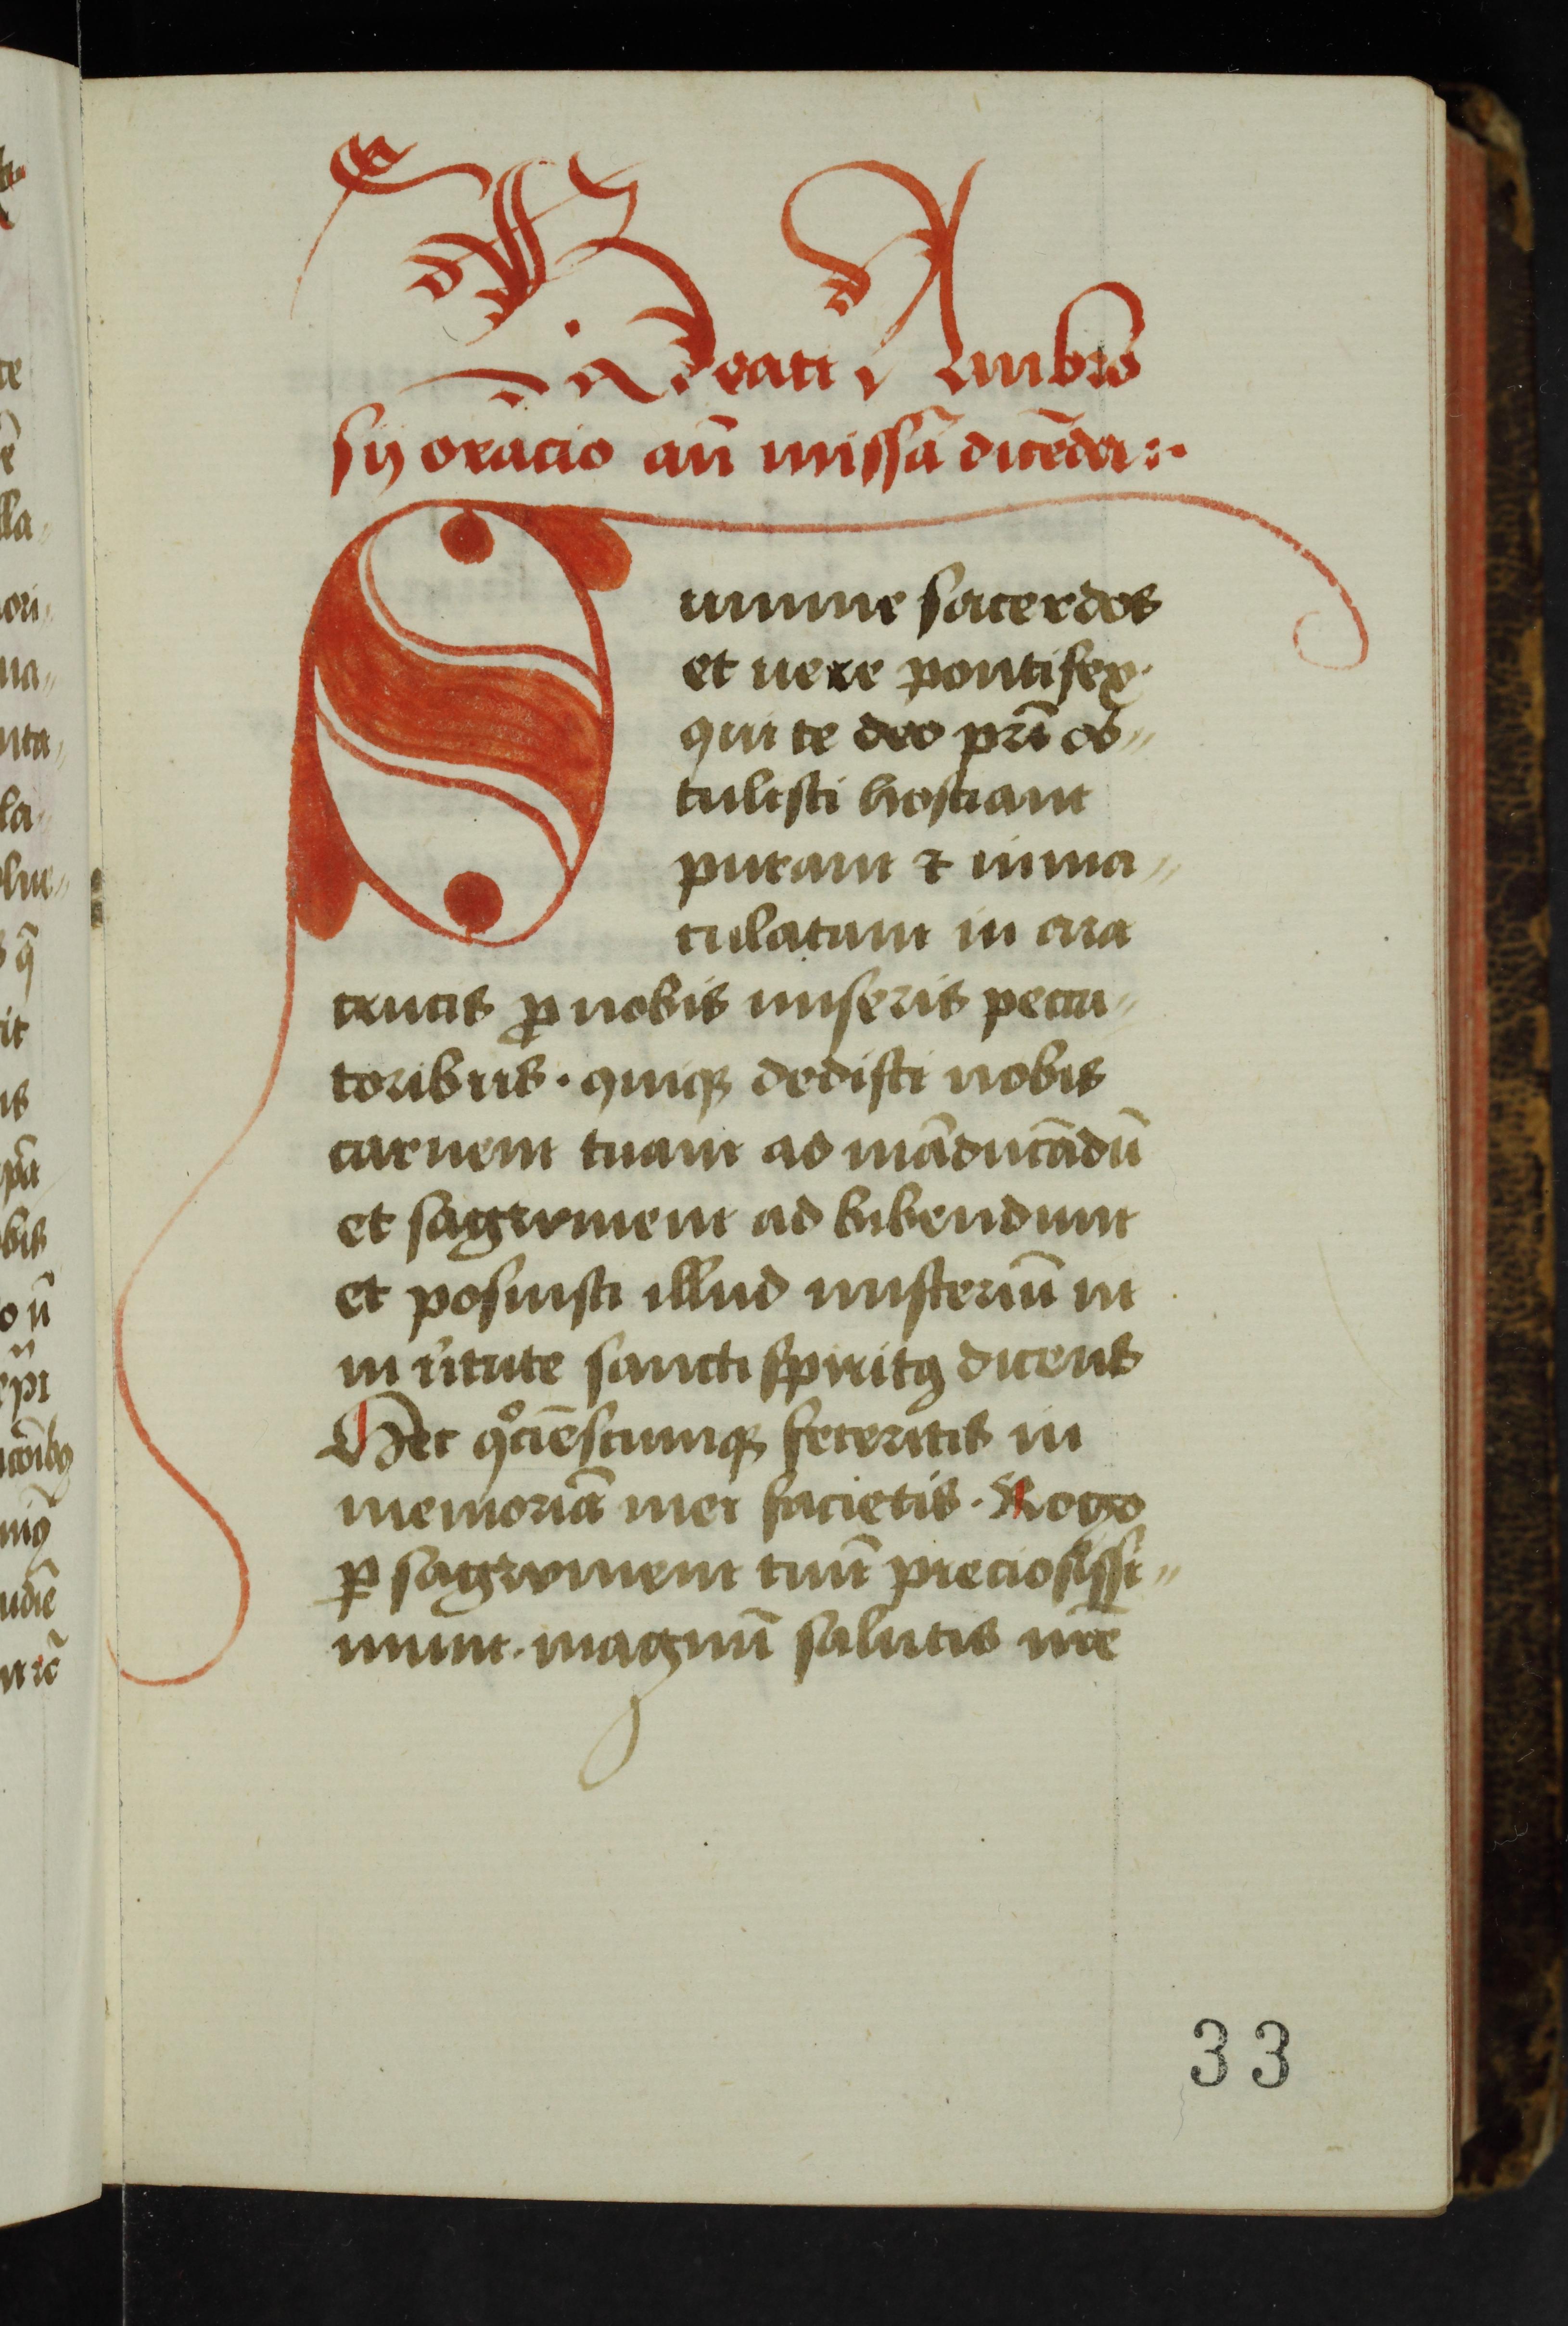 Beati Ambro
sij oracio an̄ missā dicēda :·
Summe sacerdos
et vere pontifex·
qui te deo pr̄i ob〃
tulisti hostiam
puram ⁊ imma〃
culatam in ara
crucis ꝓ nobis miseris pecca〃
toribus · quiqꝫ dedisti nobis
carnem tuam ad māducādū
et sagwinem ad bibendum
et posuisti illud misteriū in
in v̄tute sancti spiritꝯ dicens
Hec qͦciēscumqꝫ feceritis in
memoriā mei facietis · Rogo
ꝑ sagwinem tuū preciosissi〃
mum · magnū salutis nr̄e
33